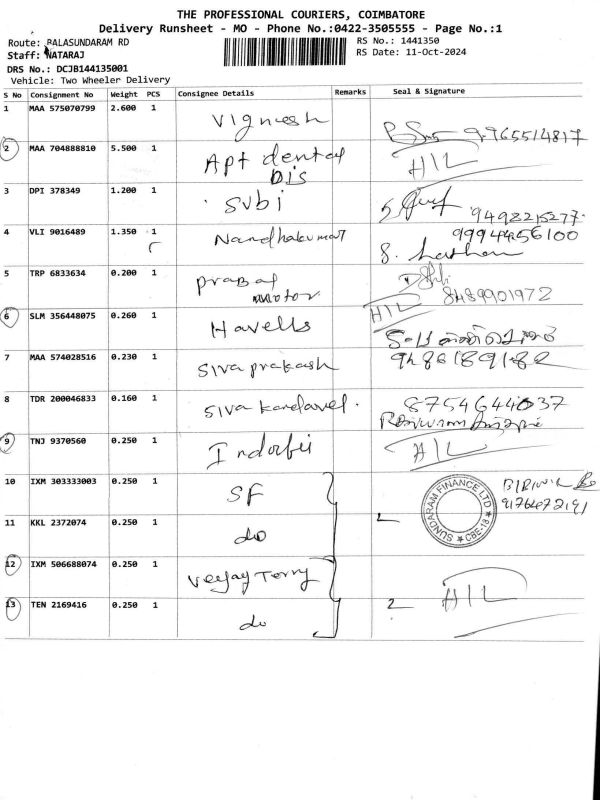 THE PROFESSIONAL COURIERS, COIMBATORE
Delivery Runsheet - MO - Phone No.:0422-3505555 - Page No.:1
Route: BALASUNDARAM RD
RS No.: 1441350
Staff: NATARAJ
RS Date: 11-Oct-2024
DRS No.: DCJB144135001
Vehicle: Two Wheeler Delivery
S No Consignment No Weight PCS Consignee Details Remarks Seal & Signature
1 MAA 575070799 2.600 1 Vignesh 9965514817
2 MAA 704888810 5.500 1 Apt dental Dis HIL
3 DPI 378349 1.200 1 Subi 9498215277
4 VLI 9016489 1.350 1 Nandhakumar 9994456100
5 TRP 6833634 0.200 1 Prabal motor 8489901972
6 SLM 356448075 0.260 1 Havells HIL
7 MAA 574028516 0.230 1 Siva prakash 9486189182
8 TDR 200046833 0.160 1 Siva kandavel. 8754644037
9 TNJ 9370560 0.250 1 HIL
10 IXM 303333003 0.250 1 SF
SUNDARAM FINANCE LTD CBE-18
11 KKL 2372074 0.250 1 do 2
12 IXM 506688074 0.250 1 Veejay Terry
13 TEN 2169416 0.250 1 do 2 HIL